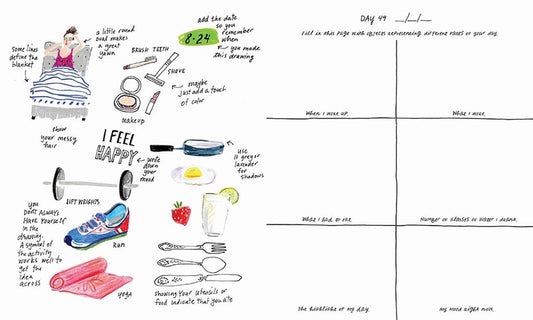 a little round
oval makes a
great yawn
some lines
define the
blanket
add the date
so you
remember
when
you made
this drawing
8·24
BRUSH TEETH
SHAVE
maybe
just add a touch
of color
makeup
show
your messy
hair
I FEEL
HAPPY
write
down your
mood
use
grey or
lavender for
shadows
LIFT WEIGHTS
you
DON'T ALWAYS
HAVE YOURSELF
IN the
drawing.
A symbol of
the activity
works well to
get the
idea
across
Run
yoga
showing your utensils or
food indicate that you ate
DAY 49 __/__/__
Fill in this page with objects representing different parts of your day.
When I woke up.
What I wore.
What I had to eat.
Number of glasses of water I drank.
The highlight of my day.
My mood right now.